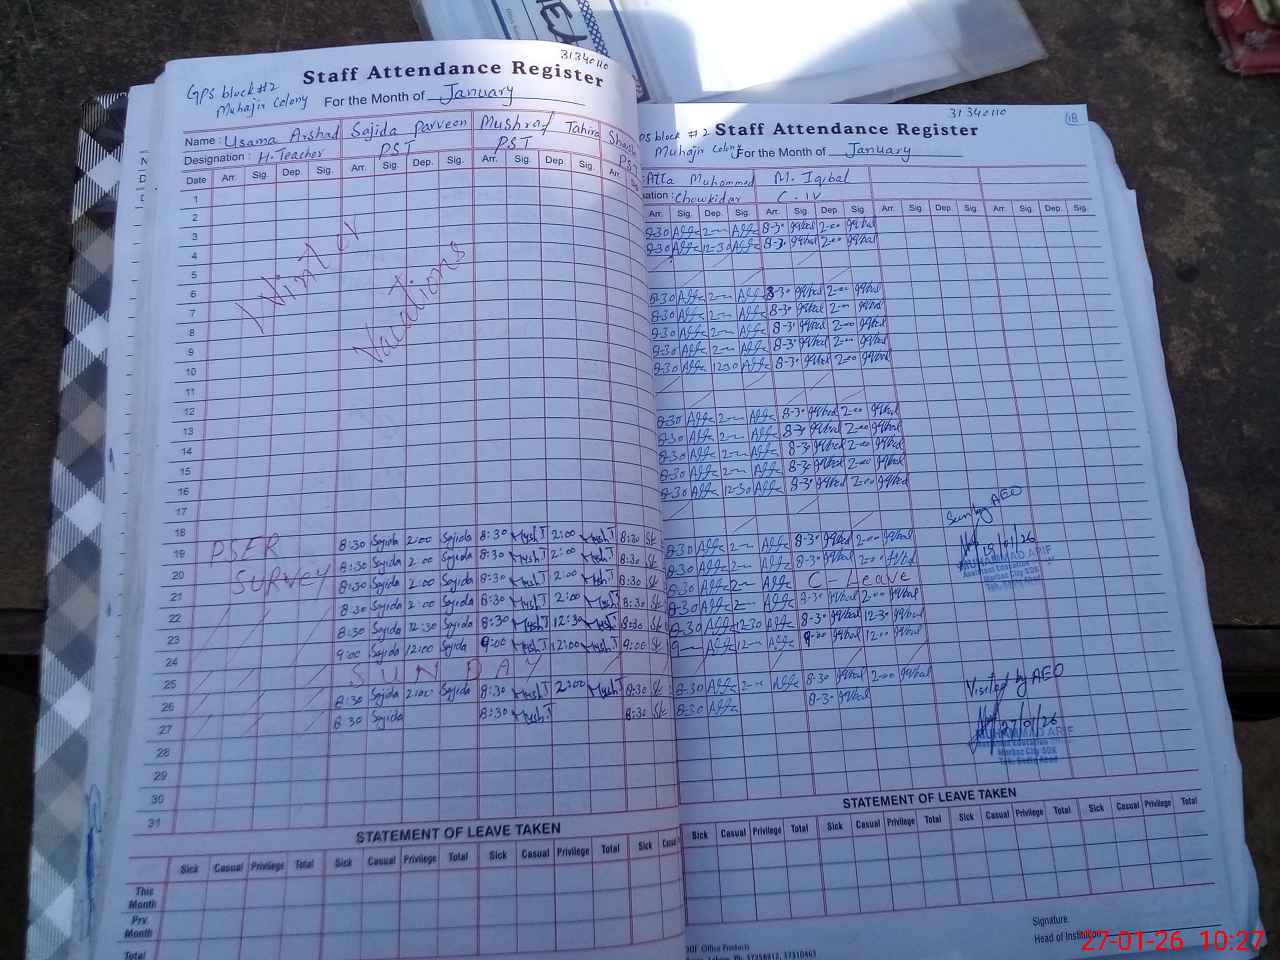 31340110
Staff Attendance Register
GPS block #2
Muhajir Colony
For the Month of January
Name : Usama Arshad Sajida Parveen Mushraf Tahira
Designation : H.Teacher PST PST
Date Arr. Sig. Dep. Sig. Arr. Sig. Dep. Sig. Arr. Sig. Dep. Sig. Arr.
1
2
3
4
5
6
7
8
9
10
11
12
13
14
15
16
17
Winter
Vacations
18 8:30 Sajida 2:00 Sajida 8:30 Mush.T 2:00 Mush.T 8:30
PSER
19 8:30 Sajida 2:00 Sajida 8:30 Mush.T 2:00 Mush.T 8:30
SURVEY
20 8:30 Sajida 2:00 Sajida 8:30 Mush.T 2:00 Mush.T 8:30
21 8:30 Sajida 2:00 Sajida 8:30 Mush.T 2:00 Mush.T 8:30
22 8:30 Sajida 12:30 Sajida 8:30 Mush.T 12:30 Mush.T 8:30
23 9:00 Sajida 12:00 Sajida 9:00 Mush.T 12:00 Mush.T 9:00
24 SUNDAY
25 8:30 Sajida 2:00 Sajida 8:30 Mush.T 2:00 Mush.T 8:30
26 8:30 Sajida 8:30 Mush.T 8:30
27
28
29
30
31
STATEMENT OF LEAVE TAKEN
Sick Casual Privilege Total Sick Casual Privilege Total Sick Casual Privilege Total Sick
This Month
Prv. Month
Total
31340110
18
block #2 Staff Attendance Register
Muhajir Colony For the Month of January
Atta Muhammad M. Iqbal
Chowkidar C-IV
Arr. Sig. Dep. Sig. Arr. Sig. Dep. Sig. Arr. Sig. Dep. Sig. Arr. Sig. Dep. Sig.
8-30 Atta 2 Atta 8-30 Iqbal 2-00 Iqbal
8-30 Atta 12-30 Atta 8-30 Iqbal 2-00 Iqbal
8-30 Atta 2 Atta 8-30 Iqbal 2-00 Iqbal
8-30 Atta 2 Atta 8-30 Iqbal 2-00 Iqbal
8-30 Atta 2 Atta 8-30 Iqbal 2-00 Iqbal
8-30 Atta 2 Atta 8-30 Iqbal 2-00 Iqbal
8-30 Atta 12-30 Atta 8-30 Iqbal 2-00 Iqbal
8-30 Atta 2 Atta 8-30 Iqbal 2-00 Iqbal
8-30 Atta 2 Atta 8-30 Iqbal 2-00 Iqbal
8-30 Atta 2 Atta 8-30 Iqbal 2-00 Iqbal
8-30 Atta 2 Atta 8-30 Iqbal 2-00 Iqbal
8-30 Atta 12-30 Atta 8-30 Iqbal 2-00 Iqbal
8-30 Atta 2 Atta 8-30 Iqbal 2-00 Iqbal
8-30 Atta 2 Atta 8-30 Iqbal 2-00 Iqbal
8-30 Atta 2 Atta C-Leave
8-30 Atta 2 Atta 8-30 Iqbal 2-00 Iqbal
8-30 Atta 12-30 Atta 8-30 Iqbal 12-30 Iqbal
9 Atta 12 Atta 9-00 Iqbal 12-00 Iqbal
8-30 Atta 2 Atta 8-30 Iqbal 2-00 Iqbal
8-30 Atta 8-30 Iqbal
by AEO
/01/26
MUHAMMAD ARIF
Markaz City SDK
Visited by AEO
27/01/26
MUHAMMAD ARIF
Assistant Education
Markaz City SDK
STATEMENT OF LEAVE TAKEN
Sick Casual Privilege Total Sick Casual Privilege Total Sick Casual Privilege Total Sick Casual Privilege Total
Signature
Head of Institution
Office Products
27-01-26 10:27